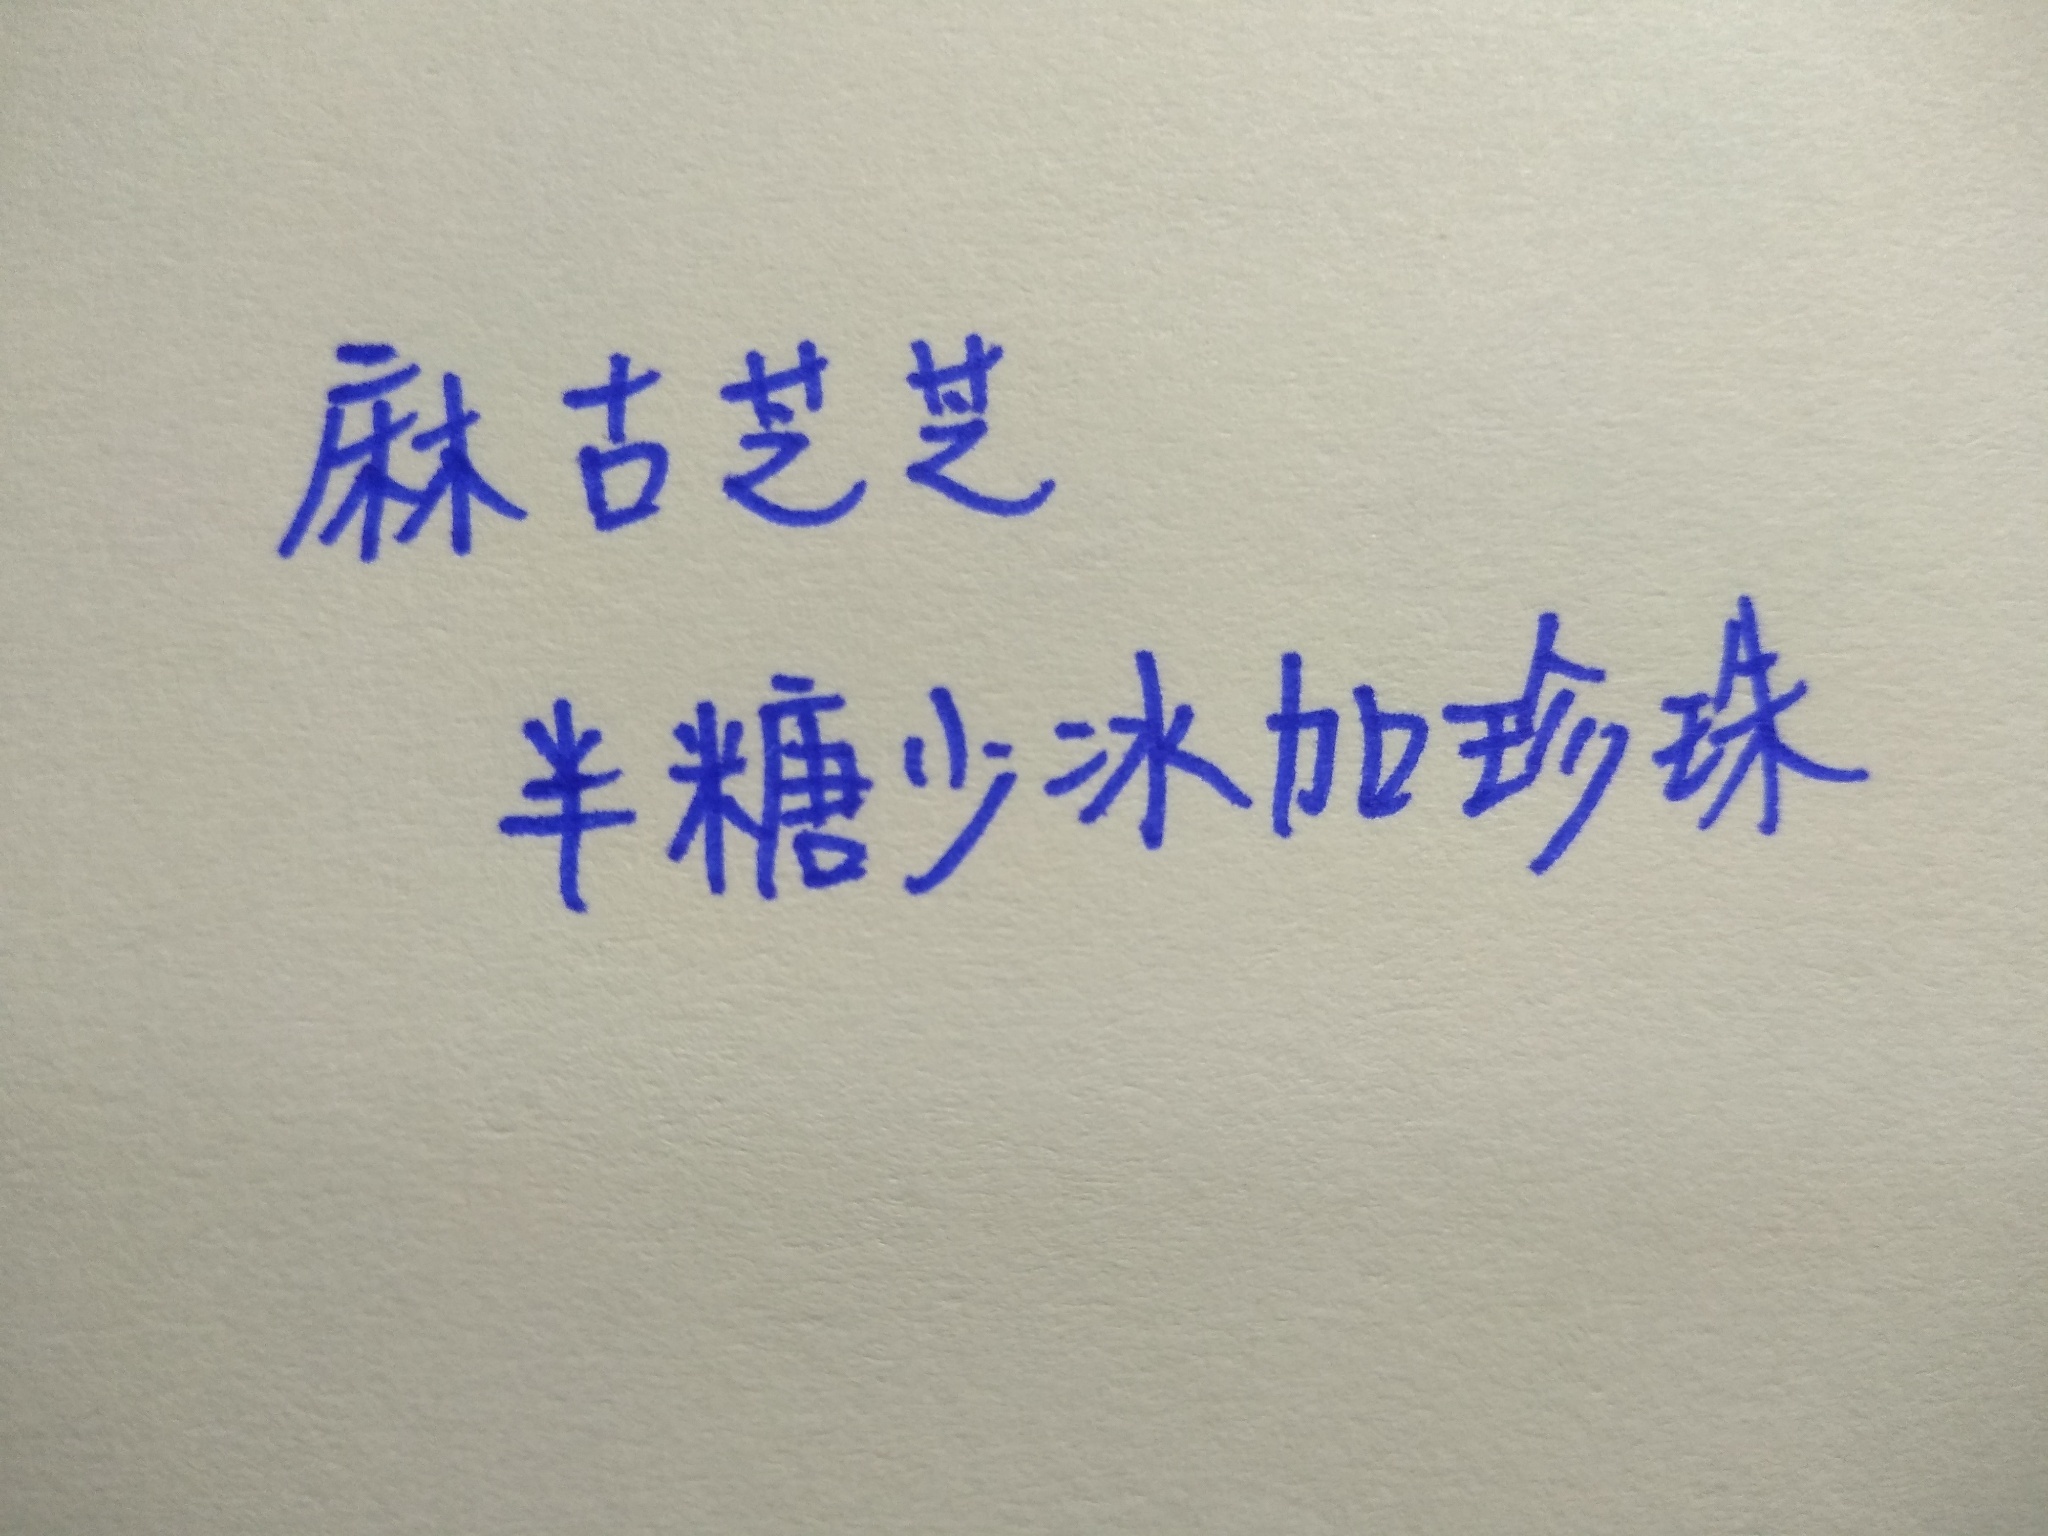 麻古芝芝
半糖少冰加珍珠